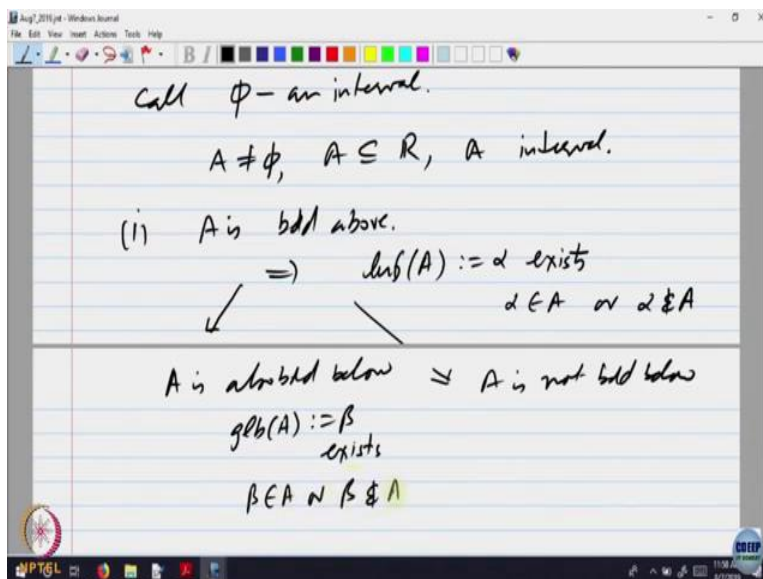 Aug7_2019.jnt - Windows Journal
File Edit View Insert Actions Tools Help
B I
Call ϕ - an interval.
A ≠ ϕ, A ⊆ ℝ, A interval.
(i) A is bdd above.
⇒ lub(A) := α exists
α ∈ A or α ∉ A
A is also bdd below A is not bdd below
glb(A) := β
exists
β ∈ A or β ∉ A
NPTEL
CDEEP